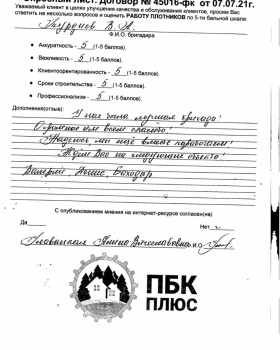 Опросный лист. Договор № 45016-фк от 07.07.21г.
Уважаемый клиент в целях улучшения качества и обслуживания клиентов, просим Вас
ответить на несколько вопросов и оценить РАБОТУ ПЛОТНИКОВ по 5-ти бальной шкале:
В. А.
Ф.И.О. бригадира
• Аккуратность - 5 (1-5 баллов).
• Вежливость - 5 (1-5 баллов).
• Клиентоориентированность - 5 (1-5 баллов).
• Срок строительства - 5 (1-5 баллов).
• Профессионализм - 5 (1-5 баллов).
Дополнения(отзыв): У нас была лучшая бригада!
Огромная им всем спасибо!
Надеюсь мы ещё с ними поработаем!
Ждём Вас на следующие объекты!
Валерий Денис, Баходар
С опубликованием мнения на интернет-ресурсе согласен(на)
Да
Нет
ПБК
ПЛЮС